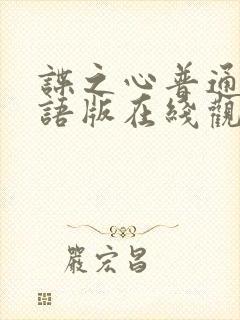 諜之心普通
語版在綫觀
嚴宏昌